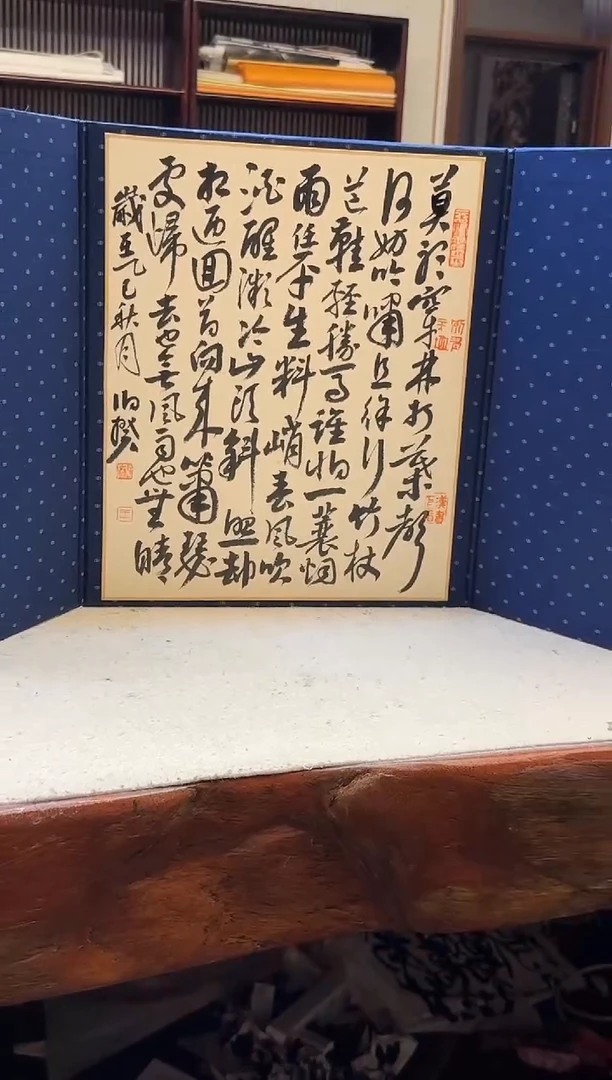 莫听穿林打葉聲
何妨吟嘯且徐行竹杖
芒鞋輕勝馬誰怕一蓑烟
雨任平生料峭春風吹
酒醒微冷山頭斜照却
相迎回首向来蕭瑟
處歸去也无風雨也無晴
歲在乙巳秋月